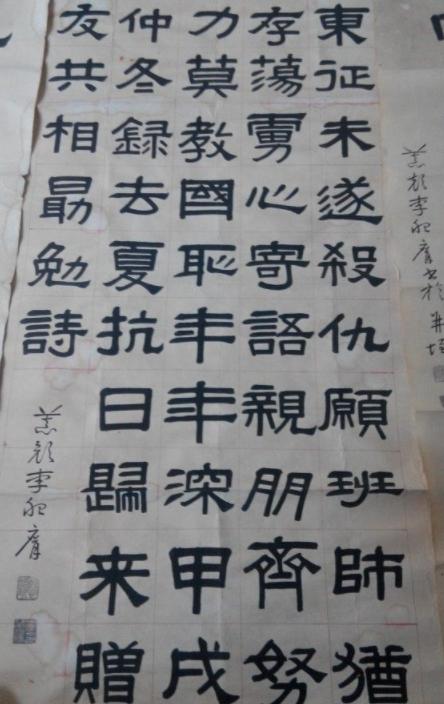 東征未遂殺仇願班師猶
存蕩虜心寄語親朋齊努
力莫教國恥年年深甲戌
仲冬録去夏抗日歸来贈
友共相勗勉詩
李膺
李膺